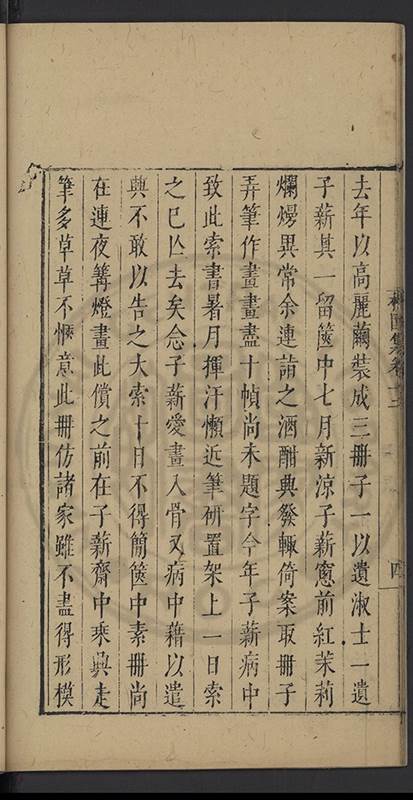 去年以高麗繭裝成三冊子一以遺淑士一遺
子薪其一留篋中七月新涼子薪窻前紅茉莉
爛熳異常余連詣之酒酣興發輒倚案取冊子
弄筆作畫畫盡十幀尚未題字今年子薪病中
致此索書暑月揮汗懶近筆研置架上一日索
之已亾去矣念子薪愛畫入骨又病中藉以遣
興不敢以告之大索十日不得簡篋中素冊尚
在連夜篝燈畫此償之前在子薪齋中乘興走
筆多草草不愜意此冊仿諸家雖不盡得形模
卷十二
四